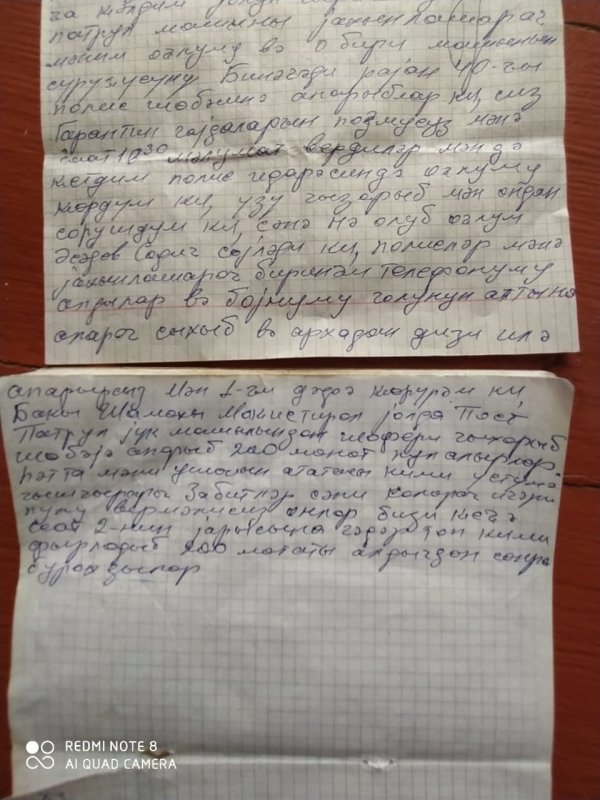 патрул машины јахынлашараг
мәним оғлуму вә о бири машынын
сүрүҹүсүнү Бинәгәди рајон 40-ҹы
полис шөбәсинә апарыблар ки, сиз
Гарантин гајдаларын позмусуз мәнә
саат 10 30 мәлумат вердиләр мәндә
кетдим полис идарәсиндә оғлуму
көрдүм ки, үзү гызарыб мән ондан
сорушдум ки, сәнә нә олуб оғлум
Әсәдов Садиг сөјләди ки, полисләр мәнә
јахынлашараг биринҹи телефонуму
алдылар вә бојнуму голунун алтына
апараг сыхыб вә архадан дизи илә
апарырсыз Мән 1-ҹи дәфә көрүрәм ки
Бакы Шамахы Макистирал јолда Пост
Патрул јүк машынындан шофери чыхарыб
шөбәјә апарыб 200 манат пул алырлар
һәтта мәни ушағын атасыны кими үстүмә
гышгырараг Забитләр сәни
пулу вермәлисиз онлар бизи кеҹә
саат 2-нин јарысына гәдәр кими
фырладыб 200 манаты алдыгдан сонра
бурахдылар
REDMI NOTE 8
AI QUAD CAMERA